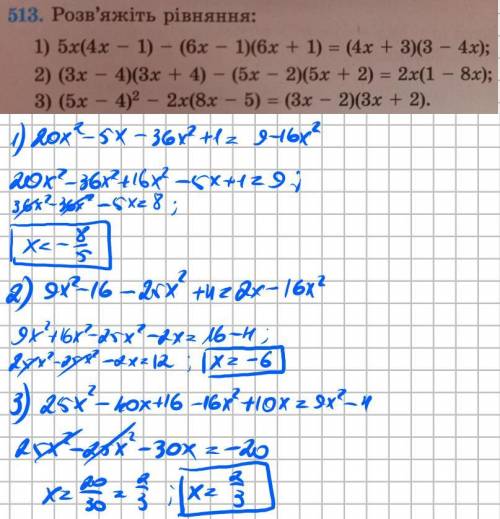 513. Розв'яжіть рівняння:
1) 5x(4x − 1) − (6x − 1)(6x + 1) = (4x + 3)(3 − 4x);
2) (3x − 4)(3x + 4) − (5x − 2)(5x + 2) = 2x(1 − 8x);
3) (5x − 4)² − 2x(8x − 5) = (3x − 2)(3x + 2).
1) 20x² − 5x − 36x² + 1 = 9 − 16x²
20x² − 36x² + 16x² − 5x + 1 = 9;
36x² − 36x² − 5x = 8;
x = − 8/5
2) 9x² − 16 − 25x² + 4 = 2x − 16x²
9x² + 16x² − 25x² − 2x = 16 − 4;
25x² − 25x² − 2x = 12; x = −6
3) 25x² − 40x + 16 − 16x² + 10x = 9x² − 4
25x² − 25x² − 30x = −20
x = 20/30 = 2/3; x = 2/3